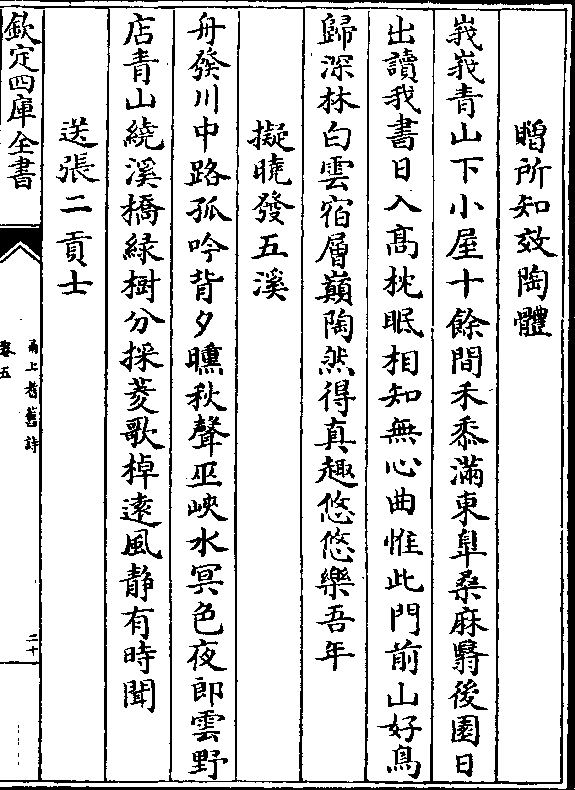 贈所知效陶體
峩峩青山下小屋十餘間禾黍滿東臯桑麻翳後園日
出讀我書日入髙枕眠相知無心曲惟此門前山好鳥
歸深林白雲宿層巔陶然得真趣悠悠樂吾年
擬曉發五溪
舟發川中路孤吟背夕曛秋聲巫峽水冥色夜郎雲野
店青山繞溪橋緑樹分採菱歌棹逺風靜有時聞
送張二貢士
欽定四庫全書
甬上耆舊詩
卷五
二十